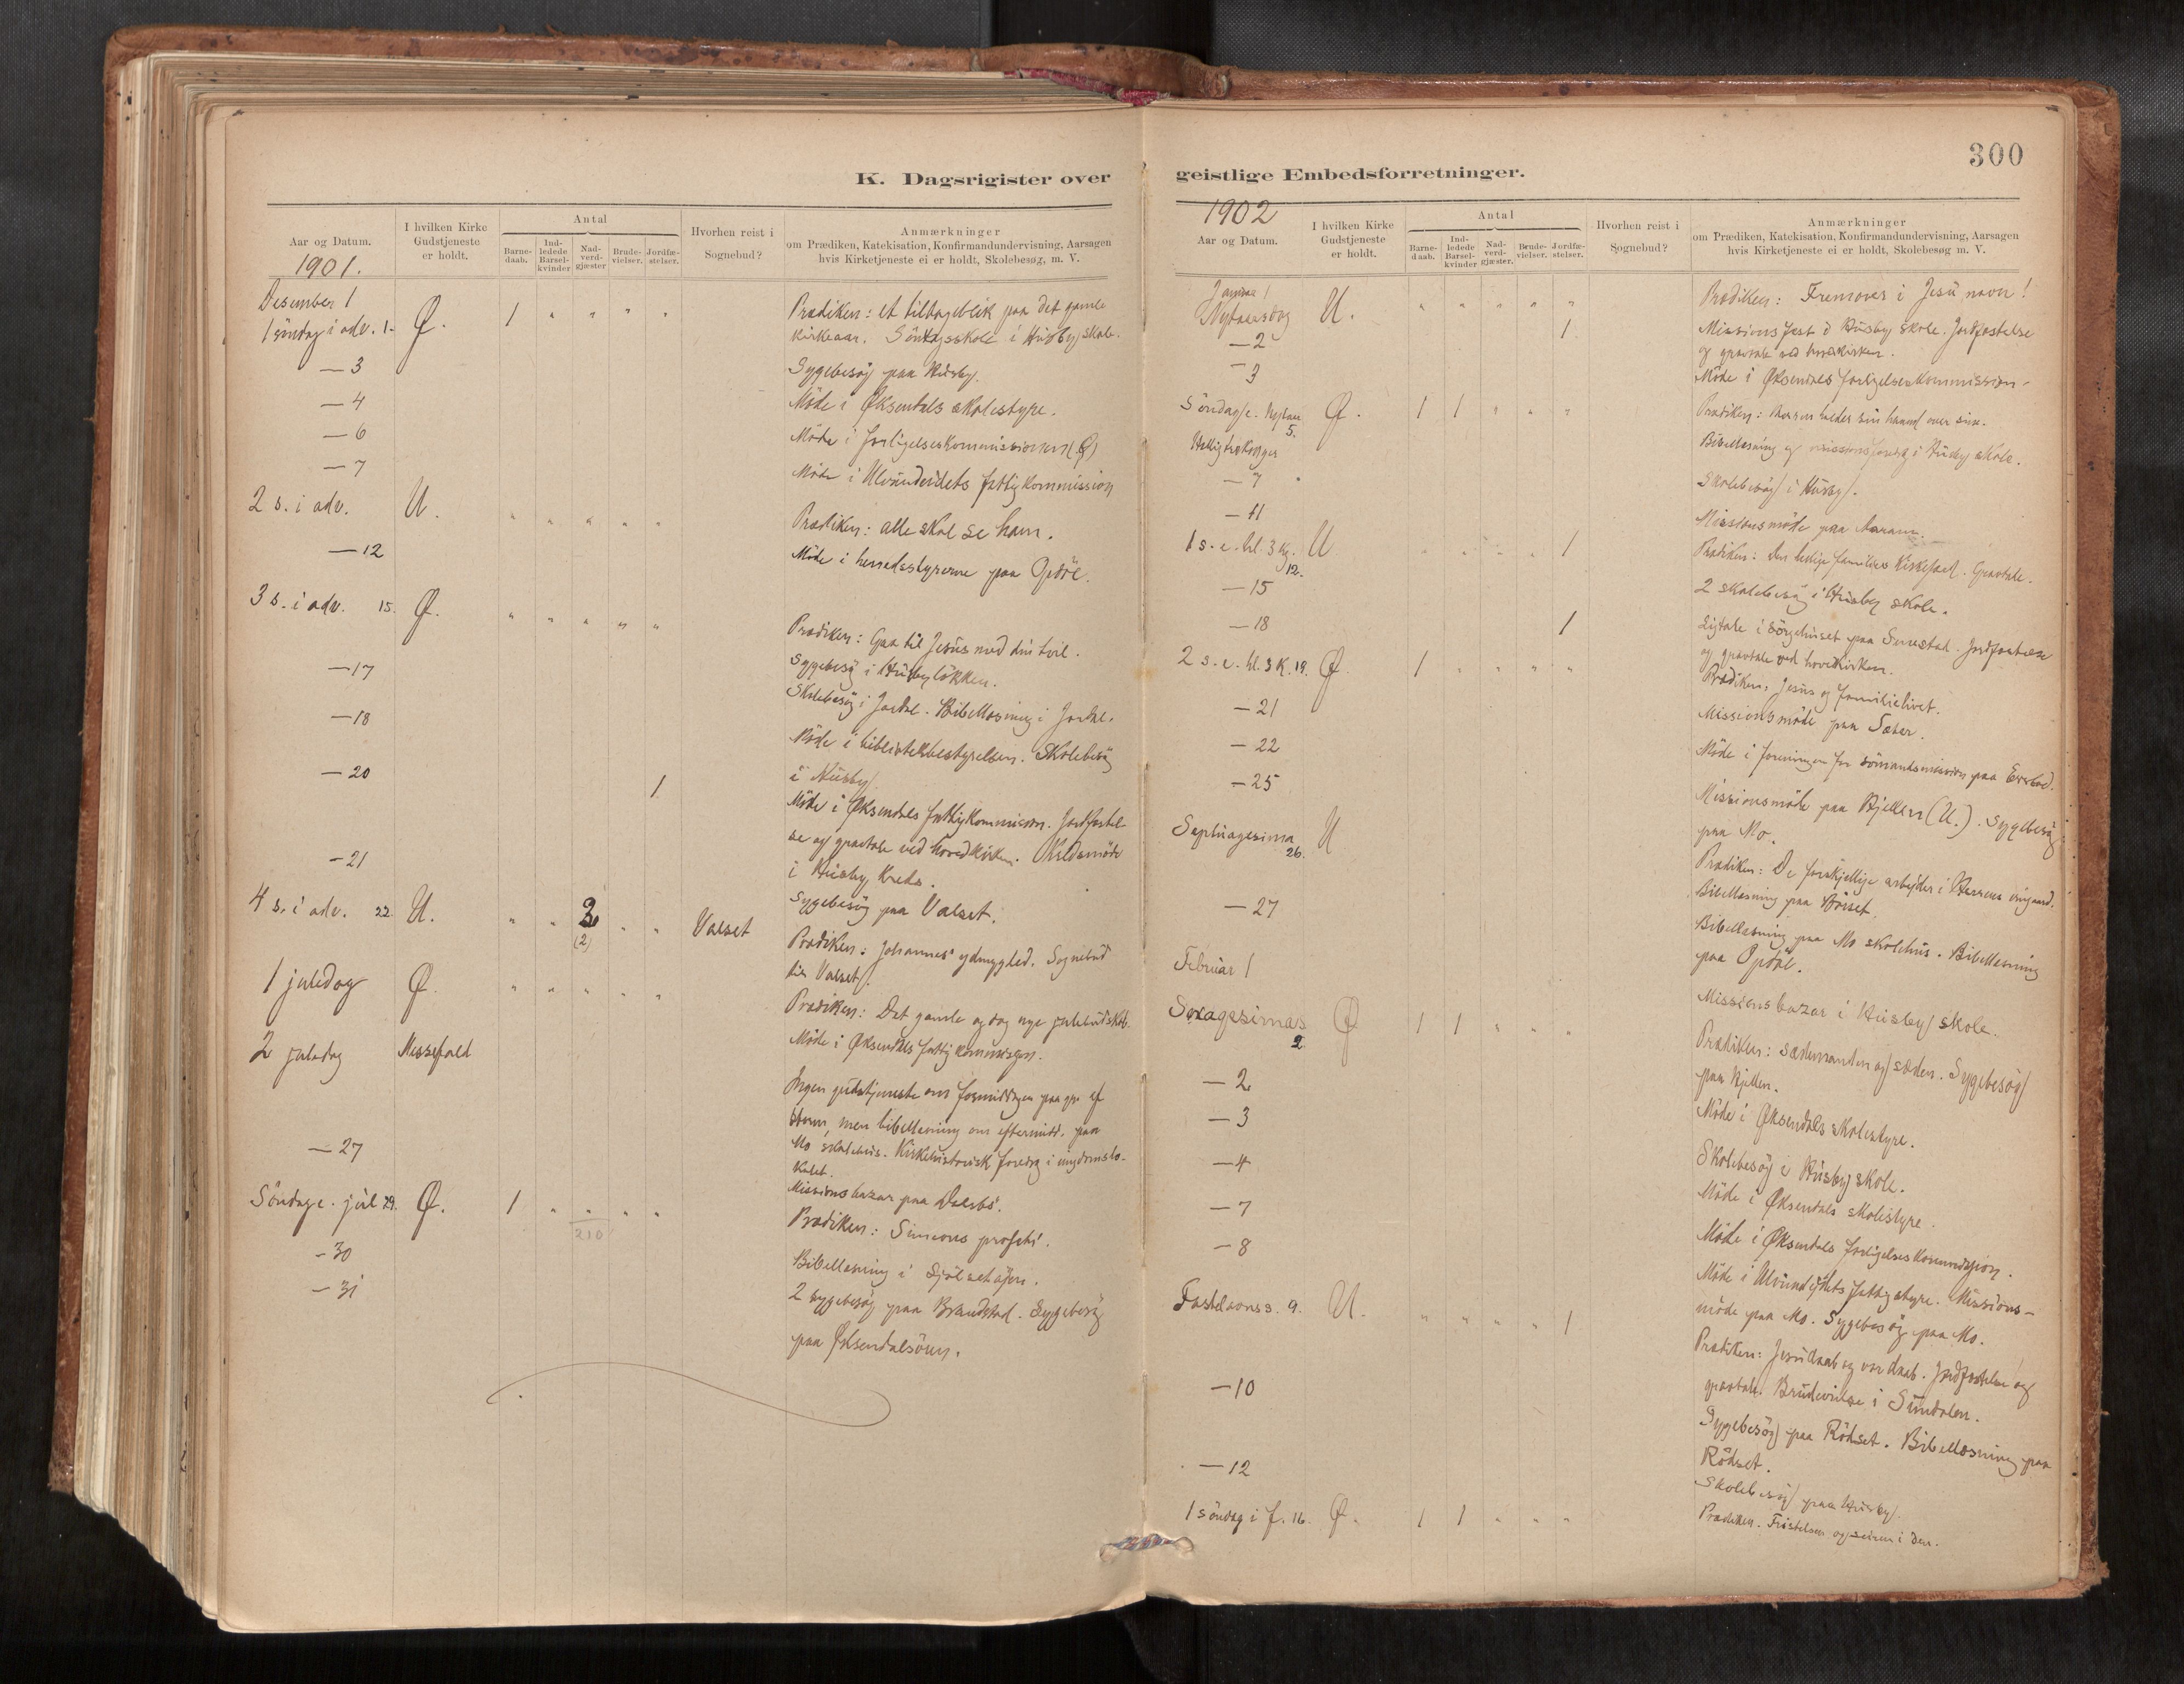 K. Dagsrigister over
Aar og Datum.
I hvilken Kirke Gudstjeneste er holdt.
Antal
Barne-daab.
Ind-ledede Barsel-kvinder
Nad-verd-gjæster
Brude-vielser.
Jordfæ-stelser.
Hvorhen reist i Sognebud?
Anmærkninger
om Prædiken, Katekisation, Konfirmandundervisning, Aarsagen
hvis Kirketjeneste ei er holdt, Skolebesøg, m. V.
1901.
Desember 1
1 söndag i adv. 1. Ø. 1 " " " " Prædiken: et tilbageblik paa det gamle
kirkeaar. Söndagsskole i Husby skole.
— 3 Sygebesög paa Husby.
— 4 Möde i Øksendals skolestyre.
— 6 Möde i forligelseskommissionen (Ø)
— 7 Möde i Ulvundeidets fattigkommission
2 s. i adv. U. " " " " " Prædiken: alle skal se ham.
— 12 Möde i herredsstyrerne paa Opdöl.
3 s. i adv. 15. Ø. " " " " " Prædiken: Gaa til Jesus med din tvil.
— 17 Sygebesög i Husbylökken.
Skolebesög i Jordal. Bibellæsning i Jordal.
— 18 Möde i bibliotekbestyrelsen. Skolebesög
i Husby
— 20 1 Möde i Øksendals fattigkommission. Jordfæstel-
se og gravtale ved hovedkirken. Kredsmöde
i Husby Kreds.
— 21 Sygebesög paa Valset.
4 s. i adv. 22. U. " " 2 " " Valset Prædiken: Johannes' ydmyghed. Sognebud
(2) til Valset.
1 juledag Ø. " " " " " Prædiken: Det gamle og dog nye julebudskab.
Möde i Øksendals fattigkommisjon.
2 juledag Messefald Ingen gudstjeneste om formiddagen paa gr. af
storm, men bibellæsning om eftermidd. paa
Mo skolehus. Kirkehistorisk foredrag i ungdomslo-
kalet.
— 27 Missionsbazar paa Dalsbö.
Söndag e. jul 29. Ø. 1 " " " " Prædiken: Simeons profeti.
210
— 30 Bibellæsning i Sjölsetöien.
— 31 2 sygebesög paa Brandstad. Sygebesög
paa Øksendalsören.
300
geistlige Embedsforretninger.
1902
Aar og Datum.
I hvilken Kirke Gudstjeneste er holdt.
Antal
Barne-daab.
Ind-ledede Barsel-kvinder
Nad-verd-gjæster.
Brude-vielser.
Jordfæ-stelser.
Hvorhen reist i Sognebud?
Anmærkninger
om Prædiken, Katekisation, Konfirmandundervisning, Aarsagen
hvis Kirketjeneste ei er holdt, Skolebesøg m. V.
Januar 1
Nytaarsdag U. " " " " " Prædiken: Fremover i Jesu navn!
— 2 1 Missionsfest i Husby skole. Jordfæstelse
og gravtale ved hovedkirken.
— 3 Möde i Øksendals forligelseskommission.
Söndag e. Nytaar 5. Ø. 1 1 " " " Prædiken: Herren holder sin haand over sine.
Helligtrekonger Bibellæsning og missionsforedrag i Husby skole.
— 7 Skolebesög i Husby.
— 11 Missionsmöde paa
1 s. e. hl. 3 kg. 12. U " " " " 1 Prædiken: Den hellige families kirkefærd. Gravtale.
— 15 2 skolebesög i Husby skole.
— 18 1 Ligtale i sörgehuset paa Smestad. Jordfæstelse
og gravtale ved hovedkirken.
2 s. e. hl. 3 K. 19. Ø. 1 " " " " Prædiken: Jesus og familielivet.
— 21 Missionsmöde paa Sæter.
— 22 Möde i foreningen for sömandsmission paa
— 25 Missionsmöde paa Hjellen (U.). Sygebesög
paa Mo.
Septuagesima 26. U Prædiken: De forskjellige arbeider i Herrens vingaard.
Bibellæsning paa
— 27 Bibellæsning paa Mo skolehus. Bibellæsning
paa Opdöl.
Februar 1 Missionsbazar i Husby skole.
Sexagesimas 2. Ø 1 1 " " " Prædiken: Sædemanden og sæden. Sygebesög
paa Hjellen.
— 2
— 3 Möde i Øksendals skolestyre.
— 4 Skolebesög i Husby skole.
Möde i Øksendals skolestyre.
— 7 Möde i Øksendals forligelseskommisjon.
— 8 Möde i Ulvundeidets fattigstyre. Missions-
möde paa Mo. Sygebesög paa Mo.
Fastelavnss. 9. U. " " " " 1 Prædiken: Jesu daab og vor daab. Jordfæstelse og
gravtale. Brudevielse i Sundalen.
— 10 Sygebesög paa Rödset. Bibellæsning paa
Rödset.
— 12 Skolebesög paa Husby.
1 söndag i f. 16. Ø. 1 1 " " " Prædiken. Fristelsen og seiren i den.